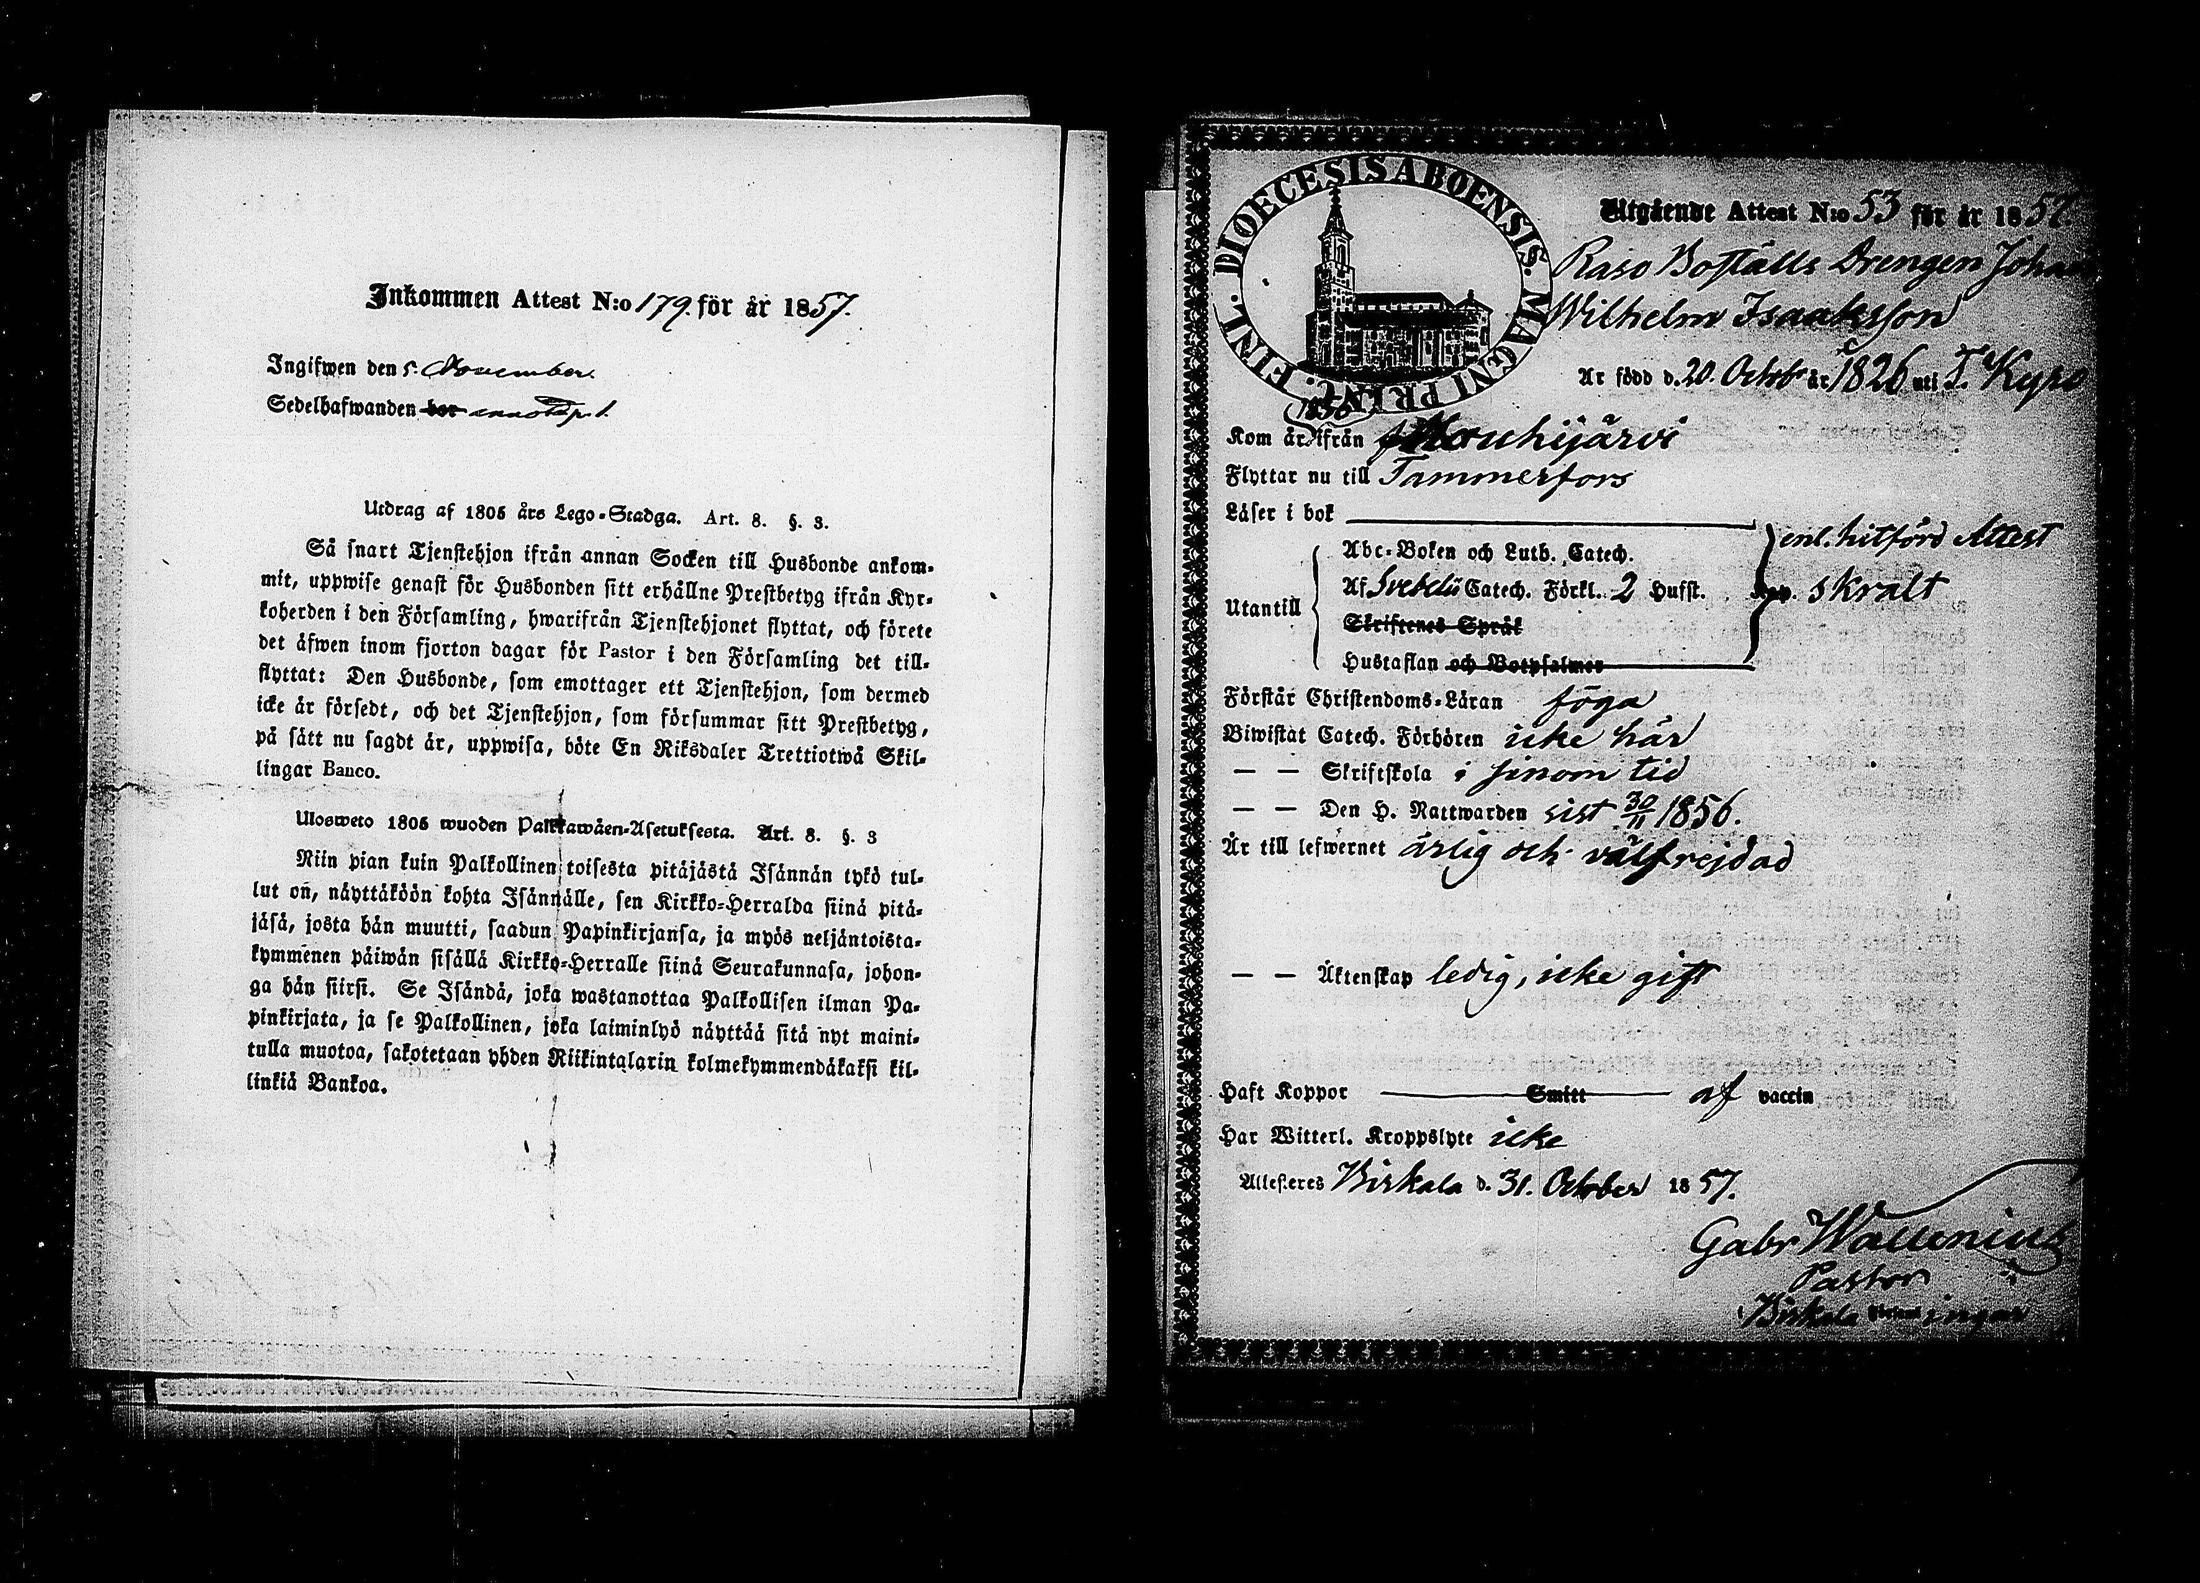 Inkommen Attest N:o 179. för år 1857.
Ingifwen den 5. November.
Sedelhafwanden bor
Utdrag af 1805 års Lego-Stadga. Art. 8. §. 3.
Så snart Tjenstehjon ifrån annan Socken till Husbonde ankom-
mit, uppwise genast för Husbonden sitt erhållne Prestbetyg ifrån Kyr-
koherden i den Församling, hwarifrån Tjenstehjonet flyttat, och förete
det äfwen inom fjorton dagar för Pastor i den Församling det till-
flyttat: Den Husbonde, som emottager ett Tjenstehjon, som dermed
icke är försedt, och det Tjenstehjon, som försummar sitt Prestbetyg,
på sätt nu sagdt är, uppwisa, böte En Riksdaler Trettiotwå Skil-
lingar Banco.
Ulosweto 1805 wuoden Palkkawäen-Asetuksesta. Art. 8. §. 3
Niin pian kuin Palkollinen toisesta pitäjästä Isännän tykö tul-
lut on, näyttäköön kohta Isännälle, sen Kirkko-Herralda siinä pitä-
jäsä, josta hän muutti, saadun Papinkirjansa, ja myös neljäntoista-
kymmenen päiwän sisällä Kirkko-Herralle siinä Seurakunnasa, johon-
ga hän siirsi. Se Isändä, joka wastanottaa Palkollisen ilman Pa-
pinkirjata, ja se Palkollinen, joka laiminlyö näyttää sitä nyt maini-
tulla muotoa, sakotetaan yhden Riikintalarin kolmekymmendäkaksi kil-
linkiä Bankoa.
DIOECESIS ABOENSIS. MAGNI PRINC. FINL.
Utgående Attest N:o 53 för år 1857.
Raso Boställs Drengen Johan
Wilhelm Isaaksson
Är född d. 20. Octob år 1826 uti T. Kyro
1856
Kom år ifrån Mouhijärvi
Flyttar nu till Tammerfors
Läser i bok
enl. hitförd Attest
Abc-Boken och Luth. Catech.
Utantill Af Svebelii Catech. Förkl. 2 Hufst. skralt
Skriftenes Språk
Hustaflan och Botpsalmer
Förstår Christendoms-Läran föga
Biwistat Catech. Förhören icke här
— — Skriftskola i sinom tid
— — Den H. Nattwarden sist 30/11 1856.
Är till lefwernet ärlig och välfrejdad
— — Äktenskap ledig, icke gift
Haft Koppor Smitt af vaccin
Har Witterl. Kroppslyte icke
Attesteres Birkala d. 31. October 1857.
Gabr Wallenius
Pastor
Birkala